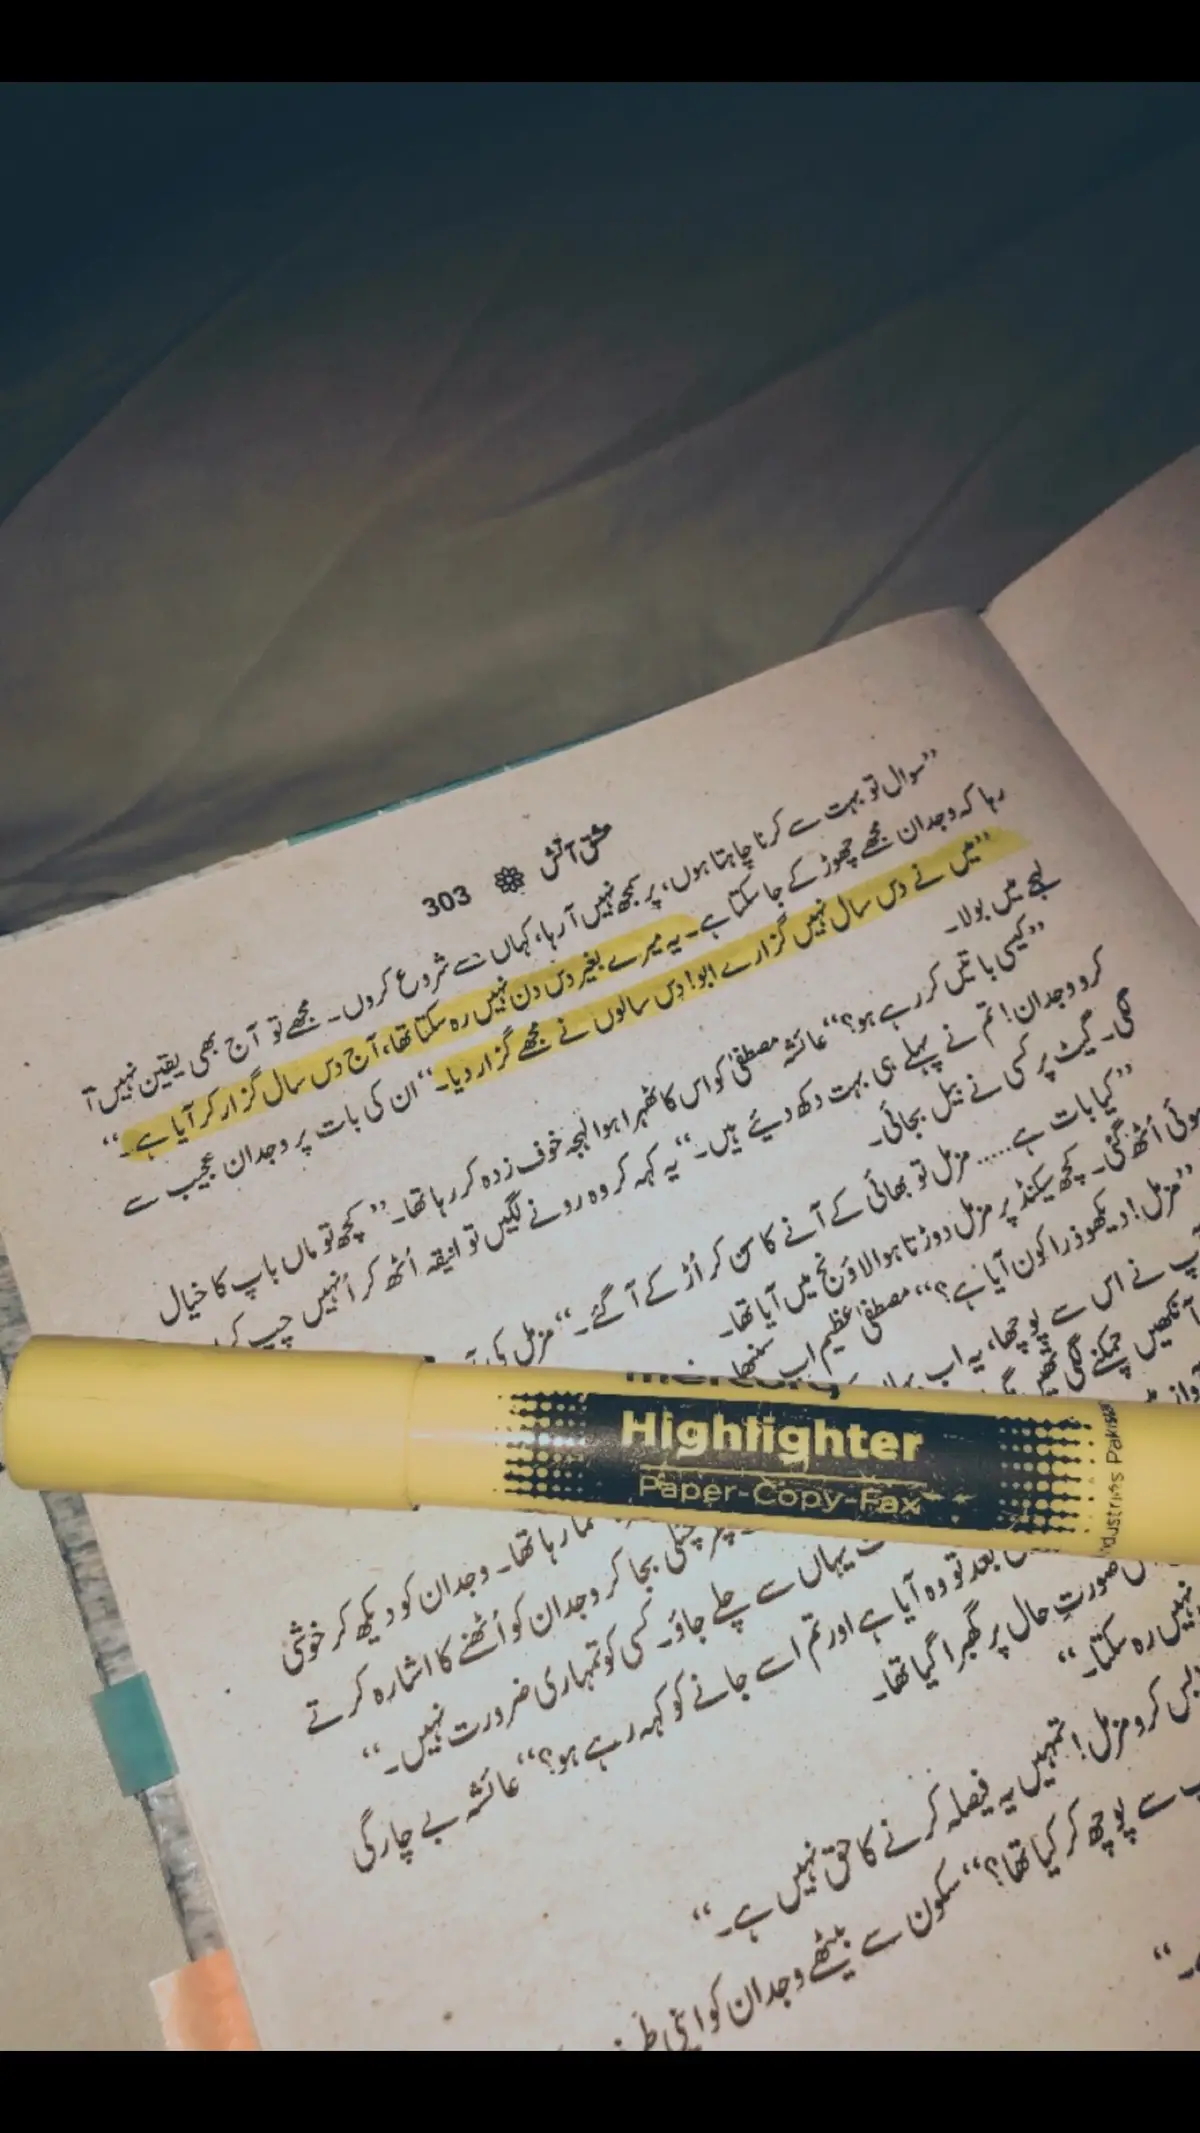 عشق آتش 303
”سوال تو بہت سے کرنا چاہتا ہوں، پر سمجھ نہیں آ رہا، کہاں سے شروع کروں۔ مجھے تو آج بھی یقین نہیں آ
رہا کہ وجدان مجھے چھوڑ کے جا سکتا ہے۔ یہ میرے بغیر دس دن نہیں رہ سکتا تھا، آج دس سال گزار کر آیا ہے۔“
”میں نے دس سال نہیں گزارے ابو! دس سالوں نے مجھے گزار دیا۔“ ان کی بات پر وجدان عجیب سے
لہجے میں بولا۔
”کیسی باتیں کر رہے ہو؟“ عائشہ مصطفیٰ کو اس کا ٹھہرا ہوا لہجہ خوف زدہ کر رہا تھا۔ ”کچھ تو ماں باپ کا خیال
کرو وجدان! تم نے پہلے ہی بہت دکھ دیئے ہیں۔“ یہ کہہ کر وہ رونے لگیں تو انیقہ اُٹھ کر اُنہیں چپ
گیٹ پر کسی نے بیل بجائی۔
”کیا بات ہے..... مزمل تو بھائی کے آنے کا سن کر اُڑ کے آ گئے۔“ مزمل کی
اُٹھ گئی۔ کچھ سیکنڈ پر مزمل دوڑتا ہوا لاؤنج میں آیا تھا۔
”مزمل! دیکھو ذرا کون آیا ہے؟“ مصطفیٰ عظیم اب
نے اس سے پوچھا، یہ اب
آنکھیں چمکنے لگی
mercury
Highlighter
Paper-Copy-Fax
Industries Pakistan
رہا تھا۔ وجدان کو دیکھ کر خوشی
چٹکی بجا کر وجدان کو اُٹھنے کا اشارہ کرتے
یہاں سے چلے جاؤ۔ کسی کو تمہاری ضرورت نہیں۔“
بعد تو وہ آیا ہے اور تم اسے جانے کو کہہ رہے ہو؟“ عائشہ بے چارگی
صورتِ حال پر گھبرا گیا تھا۔
نہیں رہ سکتا۔“
بس کرو مزمل! تمہیں یہ فیصلہ کرنے کا حق نہیں ہے۔“
سے پوچھ کر کیا تھا؟“ سکون سے بیٹھے وجدان کو اپنی